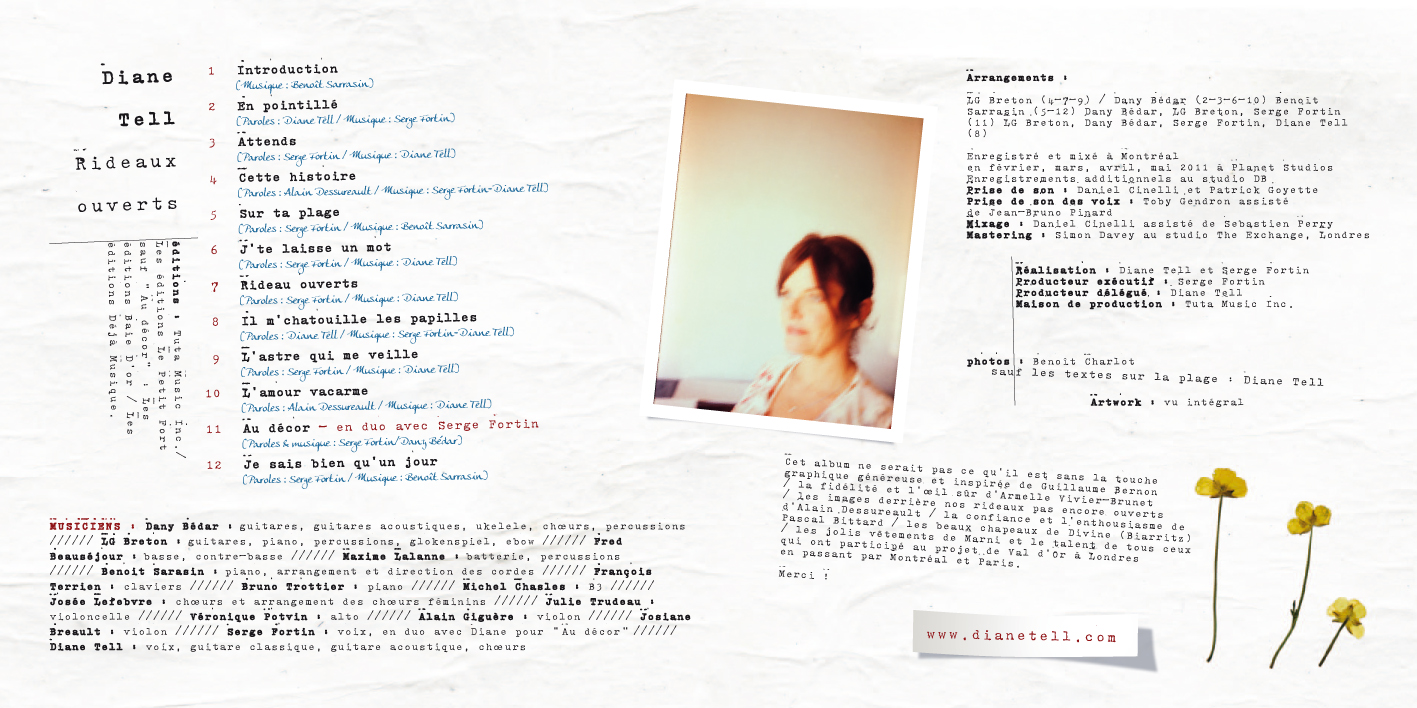 Diane
Tell
Rideaux
ouverts
éditions : Tuta Music Inc./
Les éditions Le Petit Fort
sauf "Au décor" : Les
éditions Baie D'or / Les
éditions Déjà Musique.
1 Introduction
(Musique : Benoît Sarrasin)
2 En pointillé
(Paroles : Diane Tell / Musique : Serge Fortin)
3 Attends
(Paroles : Serge Fortin / Musique : Diane Tell)
4 Cette histoire
(Paroles : Alain Dessureault / Musique : Serge Fortin-Diane Tell)
5 Sur ta plage
(Paroles : Serge Fortin / Musique : Benoît Sarrasin)
6 J'te laisse un mot
(Paroles : Serge Fortin / Musique : Diane Tell)
7 Rideau ouverts
(Paroles : Serge Fortin / Musique : Diane Tell)
8 Il m'chatouille les papilles
(Paroles : Diane Tell / Musique : Serge Fortin-Diane Tell)
9 L'astre qui me veille
(Paroles : Serge Fortin / Musique : Diane Tell)
10 L'amour vacarme
(Paroles : Alain Dessureault / Musique : Diane Tell)
11 Au décor — en duo avec Serge Fortin
(Paroles & musique : Serge Fortin/Dany Bédar)
12 Je sais bien qu'un jour
(Paroles : Serge Fortin / Musique : Benoît Sarrasin)
MUSICIENS : Dany Bédar : guitares, guitares acoustiques, ukelele, chœurs, percussions
////// LG Breton : guitares, piano, percussions, glokenspiel, ebow ////// Fred
Beauséjour : basse, contre-basse ////// Maxime Lalanne : batterie, percussions
////// Benoit Sarasin : piano, arrangement et direction des cordes ////// François
Terrien : claviers ////// Bruno Trottier : piano ////// Michel Chasles : B3 //////
Josée Lefebvre : chœurs et arrangement des chœurs féminins ////// Julie Trudeau :
violoncelle ////// Véronique Potvin : alto ////// Alain Giguère : violon ////// Josiane
Breault : violon ////// Serge Fortin : voix, en duo avec Diane pour "Au décor" //////
Diane Tell : voix, guitare classique, guitare acoustique, chœurs
Arrangements :
LG Breton (4-7-9) / Dany Bédar (2-3-6-10) Benoit
Sarrasin (5-12) Dany Bédar, LG Breton, Serge Fortin
(11) LG Breton, Dany Bédar, Serge Fortin, Diane Tell
(8)
Enregistré et mixé à Montréal
en février, mars, avril, mai 2011 à Planet Studios
Enregistrements additionnels au studio DB
Prise de son : Daniel Cinelli et Patrick Goyette
Prise de son des voix : Toby Gendron assisté
de Jean-Bruno Pinard
Mixage : Daniel Cinelli assisté de Sebastien Perry
Mastering : Simon Davey au studio The Exchange, Londres
Réalisation : Diane Tell et Serge Fortin
Producteur exécutif : Serge Fortin
Producteur délégué : Diane Tell
Maison de production : Tuta Music Inc.
photos : Benoit Charlot
sauf les textes sur la plage : Diane Tell
Artwork : vu intégral
Cet album ne serait pas ce qu'il est sans la touche
graphique généreuse et inspirée de Guillaume Bernon
/ la fidélité et l'œil sûr d'Armelle Vivier-Brunet
/ les images derrière nos rideaux pas encore ouverts
d'Alain Dessureault / la confiance et l'enthousiasme de
Pascal Bittard / les beaux chapeaux de Divine (Biarritz)
/ les jolis vêtements de Marni et le talent de tous ceux
qui ont participé au projet de Val d'Or à Londres
en passant par Montréal et Paris.
Merci !
www.dianetell.com